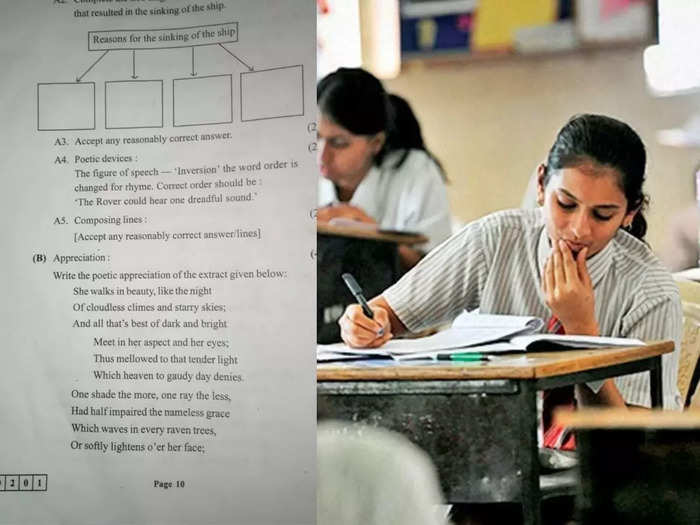 that resulted in the sinking of the ship.
Reasons for the sinking of the ship
A3. Accept any reasonably correct answer.
(2
A4. Poetic devices :
(2
The figure of speech — 'Inversion' the word order is
changed for rhyme. Correct order should be :
'The Rover could hear one dreadful sound.'
A5. Composing lines :
(2
[Accept any reasonably correct answer/lines]
(B) Appreciation :
Write the poetic appreciation of the extract given below:
She walks in beauty, like the night
Of cloudless climes and starry skies;
And all that's best of dark and bright
Meet in her aspect and her eyes;
Thus mellowed to that tender light
Which heaven to gaudy day denies.
One shade the more, one ray the less,
Had half impaired the nameless grace
Which waves in every raven trees,
Or softly lightens o'er her face;
2 0 1
Page 10